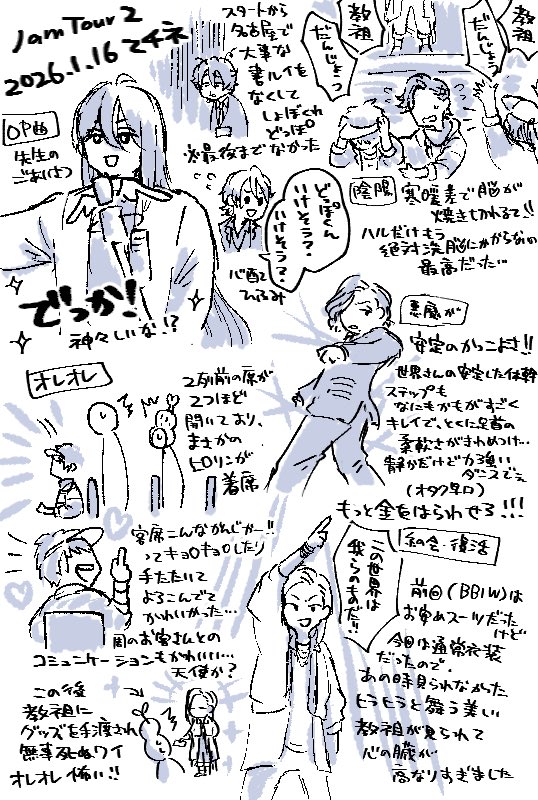 Jam Tour 2
2026.1.16 マチネ
OP曲
先生の
ごあいさつ
でっか!
神々しいな!?
スタートから
名古屋で
大事な
書ルイを
なくして
しょぼくれ
どっぽ
※最後までなかった
どっぽくん
いけそう?
いけそう?
心配で
ひふみ
教祖
だんじょっ
教祖
だんじょっ
陰陽
寒暖差で脳が
焼き切れるて!!
ハルだけもう
絶対洗脳にかからないの
最高だった…
悪魔が
安定のかっこよさ!!
世界さんの安定した体幹
ステップも
なにもかもがすごく
キレイで、とくに足首の
柔軟さがきわめつけ…
静かだけど力強い
ダンスでぇ
(オタク早口)
もっと金をはらわせろ!!!
オレオレ
2列前の席が
2つほど
開いており、
まさかの
ヒロリンが
着席
客席こんなかんじかー!!
ってキョロキョロしたり
手たたいて
よろこんでて
かわいかった…
周のお客さんとの
コミュニケーションもかわいい…
天使か?
この後
教祖に
グッズを手渡され
無事死ぬワイ
オレオレ怖い!!
この世界は
我らのものだ!!
総会・復活
前回(BB1W)は
お車めスーツだった
けど
今回は通常衣装
だったので、
あの時見られなかった
ヒラヒラと舞う美しい
教祖が見られて
心の臓が
高なりすぎました